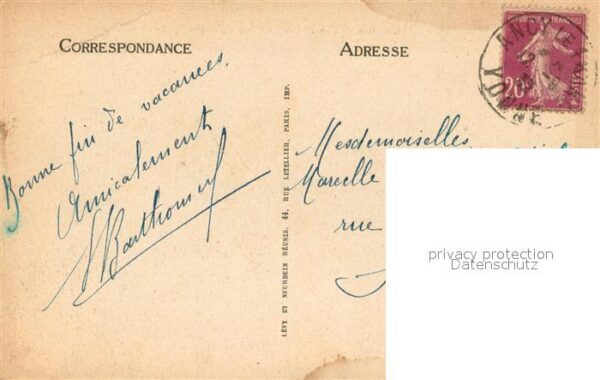 CORRESPONDANCE
Bonne fin de vacances.
Amicalement
ADRESSE
RÉPUBLIQUE FRANÇAISE
20
POSTES
YONNE
LÉVY ET NEURDEIN RÉUNIS, 44, RUE LETELLIER, PARIS, IMP.
Mesdemoiselles
Marcelle
rue
privacy protection
Datenschutz